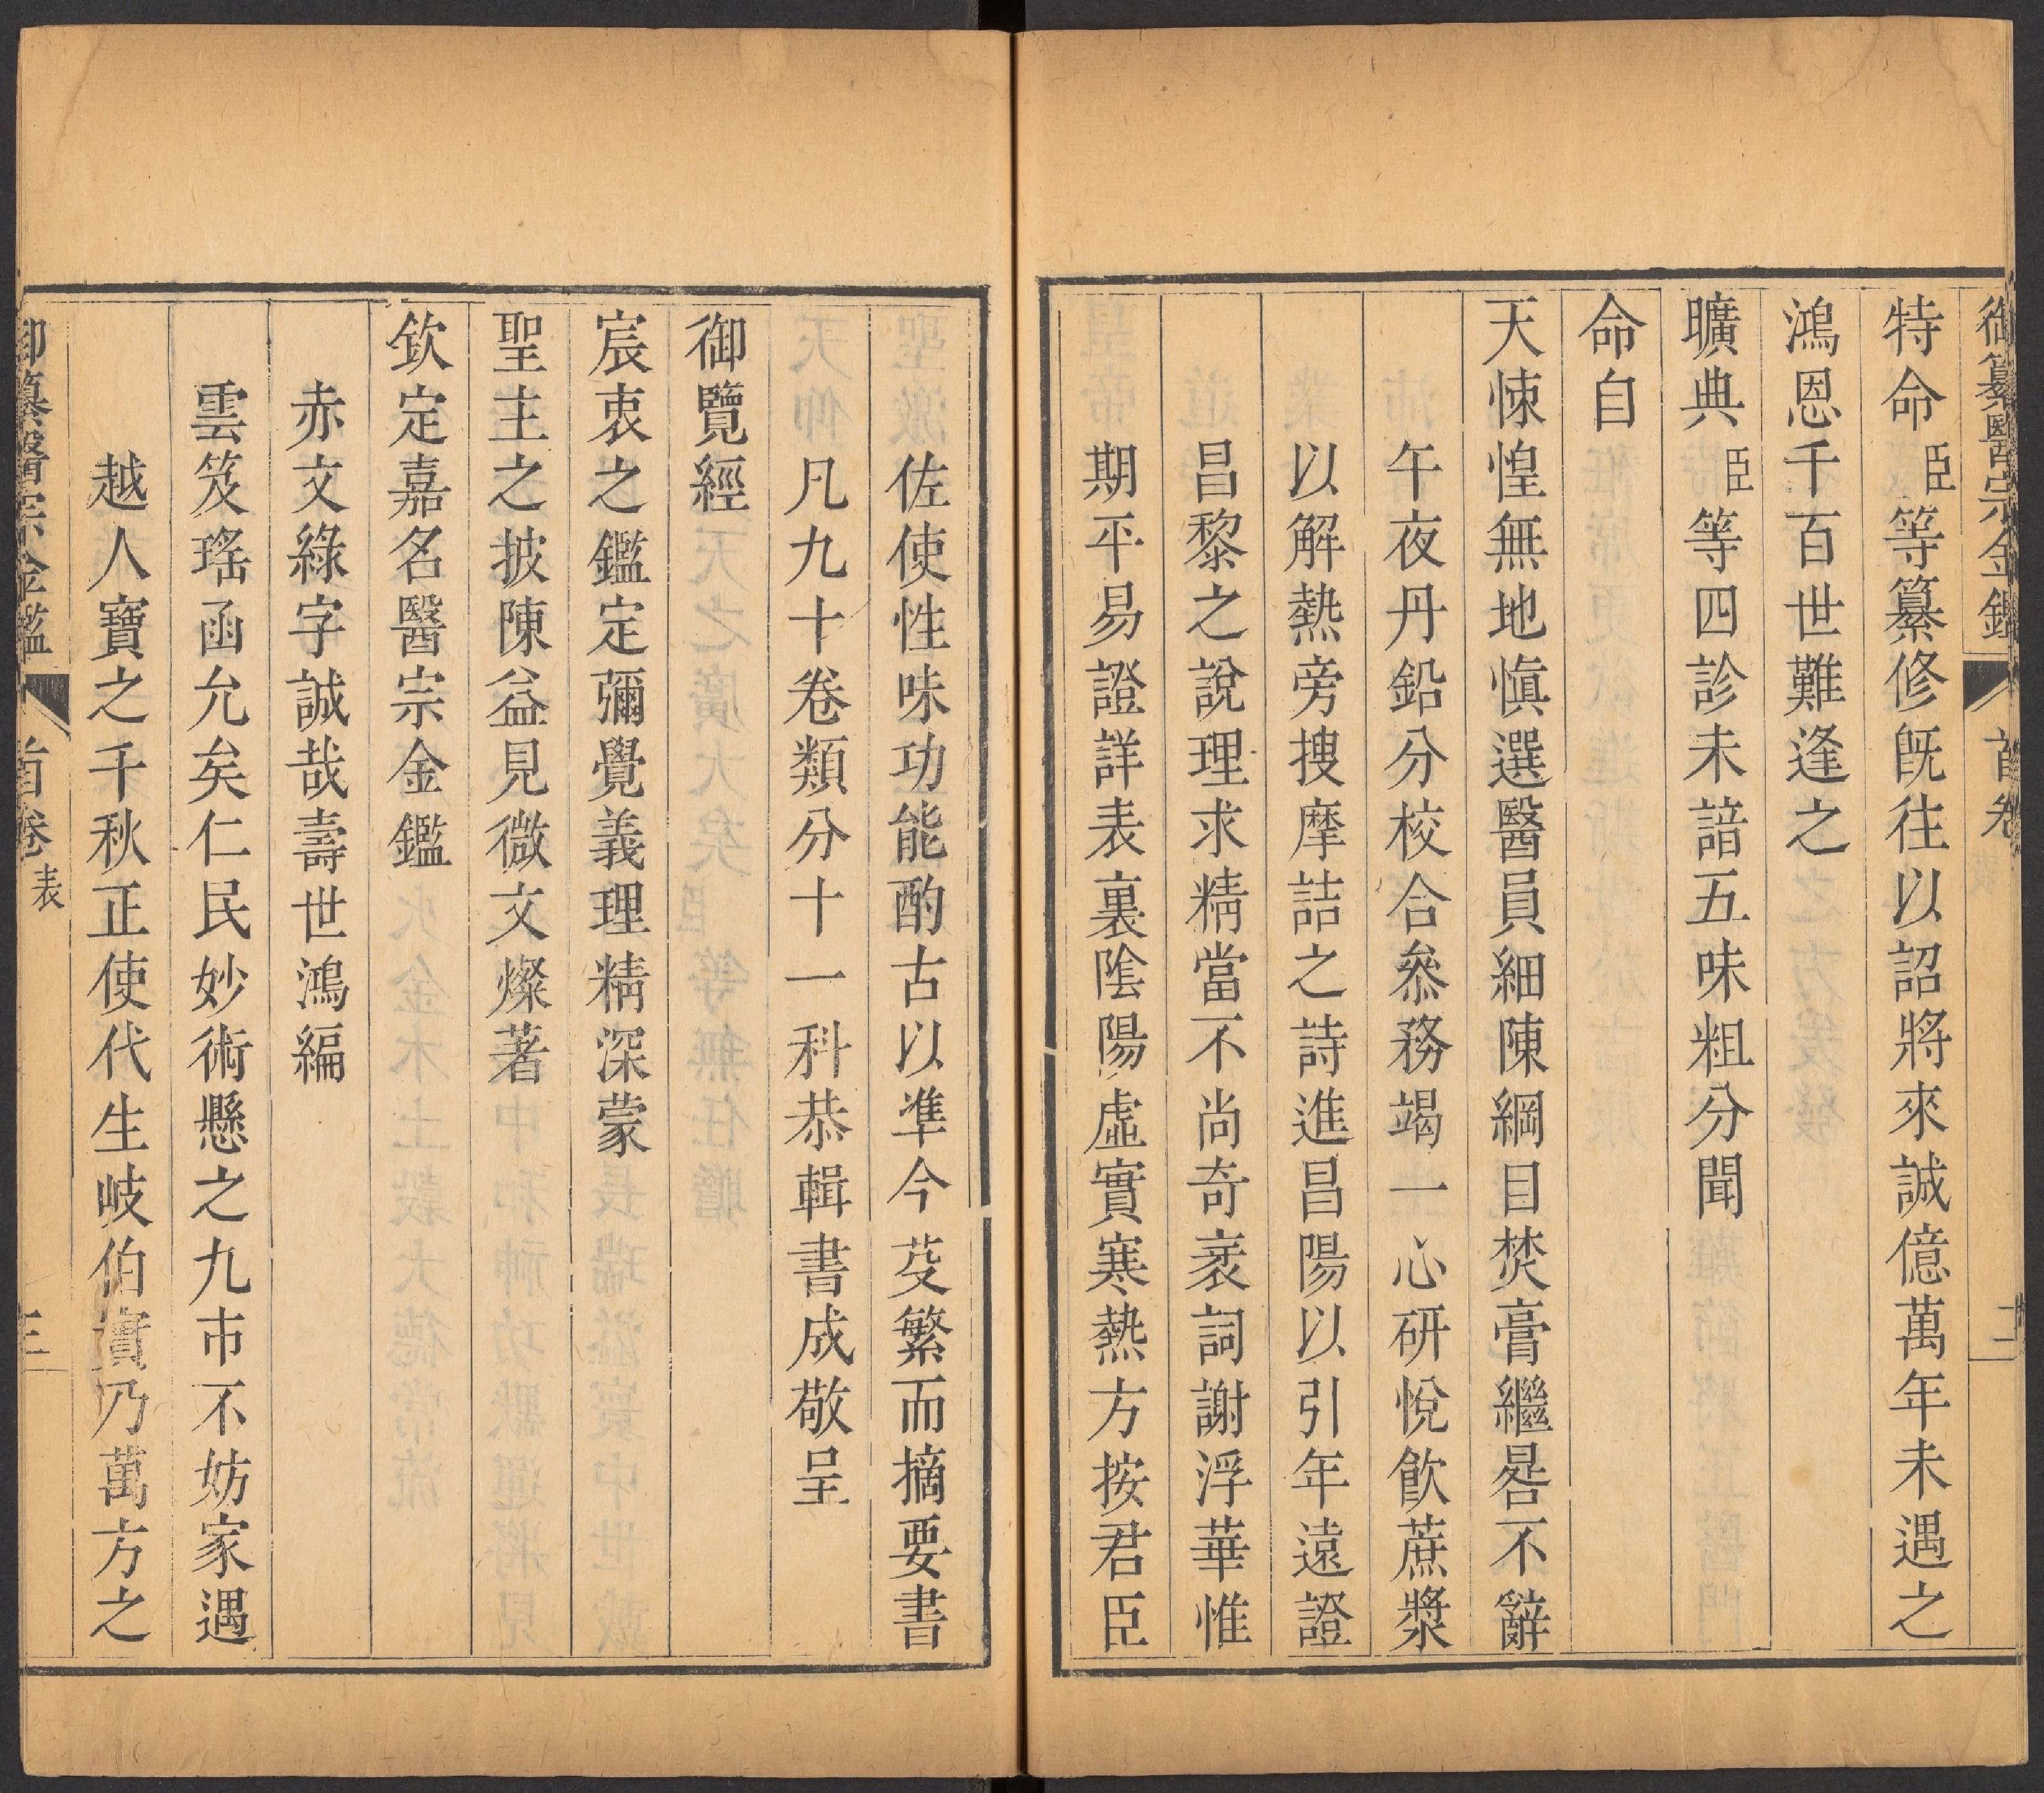 御纂醫宗金鑑 首卷 二
特命臣等纂修既往以詔將來誠億萬年未遇之
鴻恩千百世難逢之
曠典臣等四診未諳五味粗分聞
命自
天悚惶無地慎選醫員細陳綱目焚膏繼晷不辭
午夜丹鉛分校合叅務竭一心研悅飲蔗漿
以解熱旁搜摩詰之詩進昌陽以引年遠證
昌黎之說理求精當不尚奇袤詞謝浮華惟
期平易證詳表裏陰陽虛實寒熱方按君臣
佐使性味功能酌古以準今芟繁而摘要書
凡九十卷類分十一科恭輯書成敬呈
御覽經
宸衷之鑑定彌覺義理精深蒙
聖主之披陳益見微文燦著
欽定嘉名醫宗金鑑
赤文綠字誠哉壽世鴻編
雲笈瑤函允矣仁民妙術懸之九市不妨家遇
越人寶之千秋正使代生岐伯實乃萬方之
御纂醫宗金鑑 首卷表 三